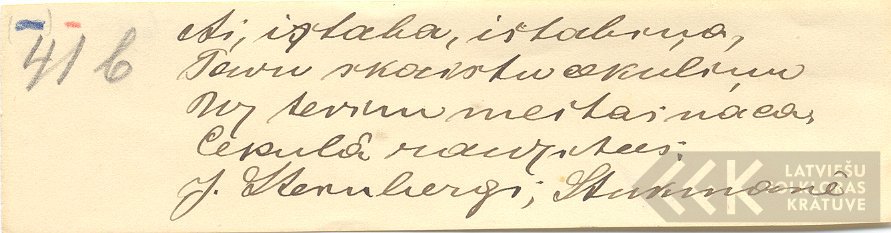 41 b
Ai, iſtaba, iſtabiņa,
Tawu skaistu cekuliņu
Uſ tewim meitas nāca,
Cekulâ rauſitees.
J. Sternbergs; Stukmanê
LATVIEŠU
FOLKLORAS
KRĀTUVE